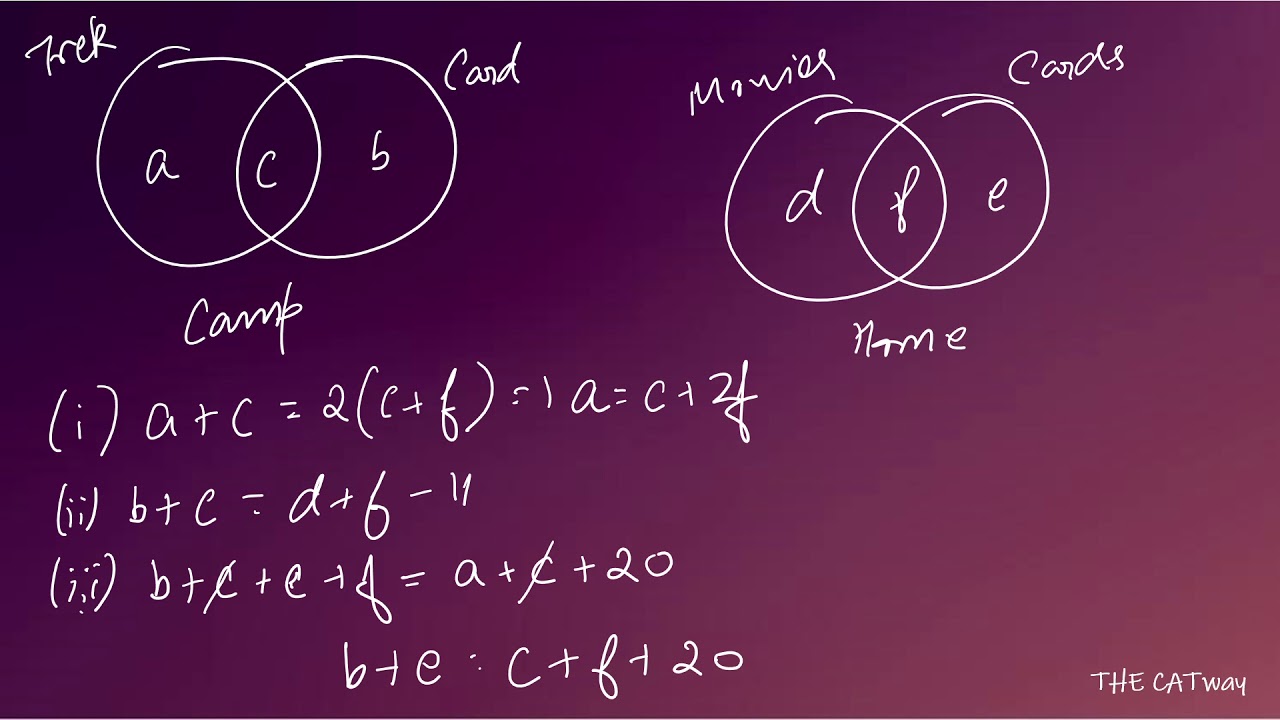 Trek
Card
Movies
Cards
a c b
d f e
Camp
Home
(i) a + c = 2(c+f) => a = c + 2f
(ii) b + c = d + f - 11
(iii) b + c + e + f = a + c + 20
b + e = c + f + 20
THE CATway